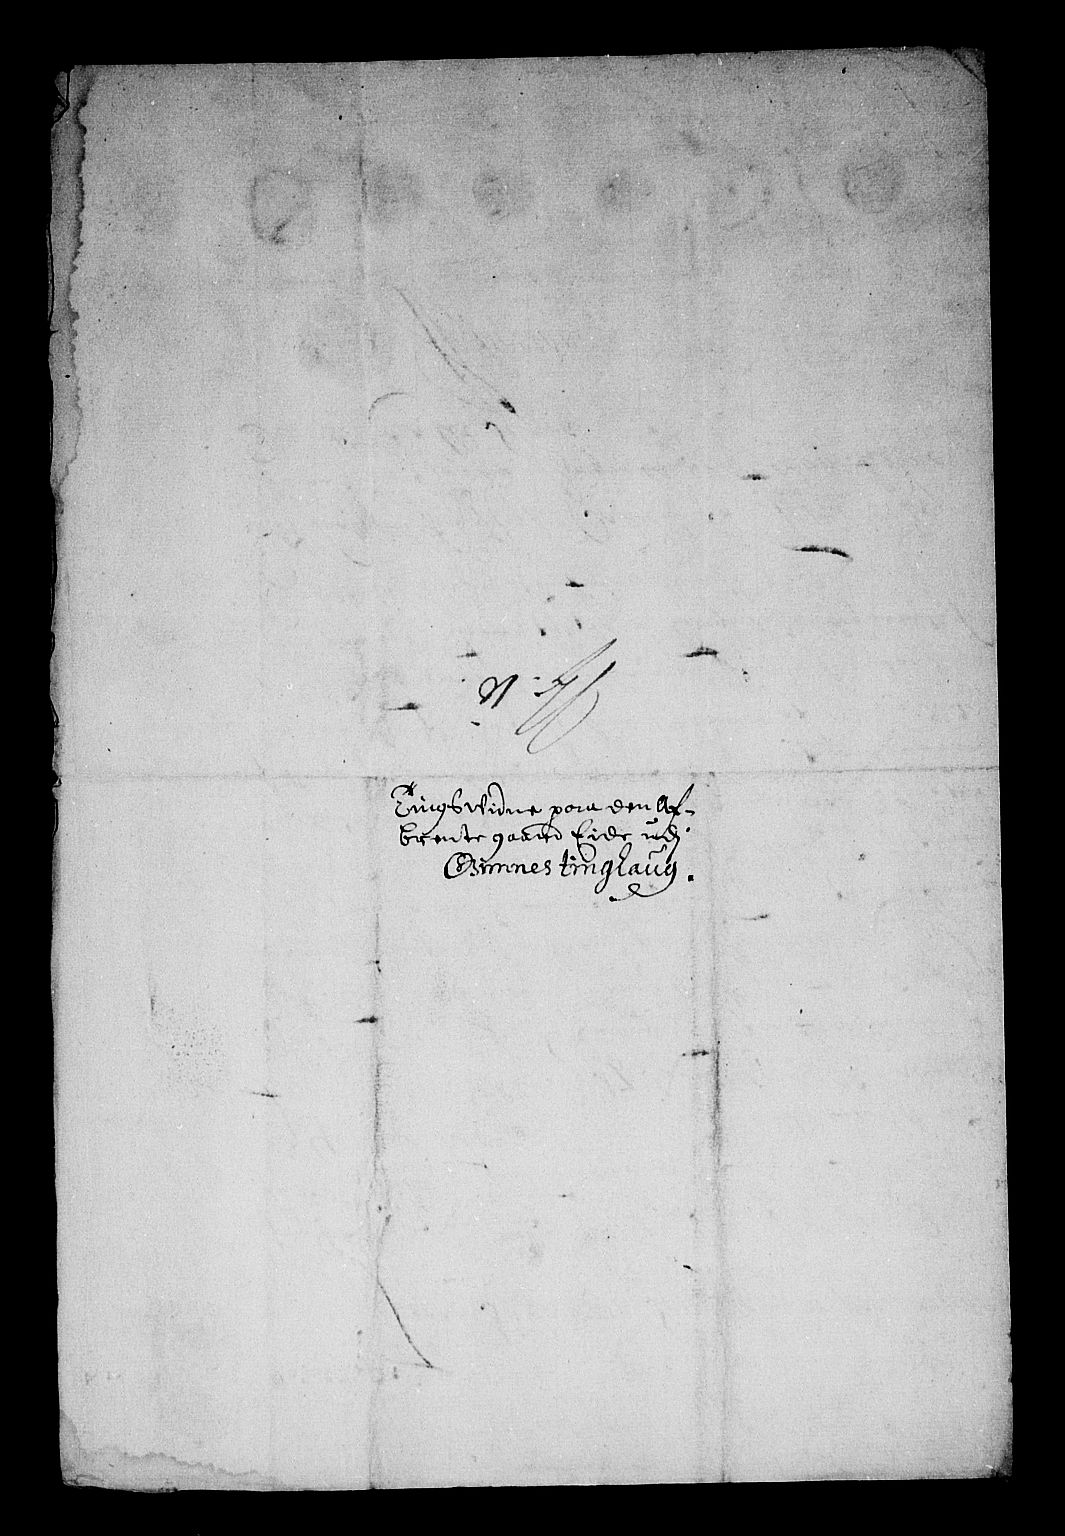 N:
Tingswidne paa den Af-
brente gaard Eide udj
Gimnes tinglaug.